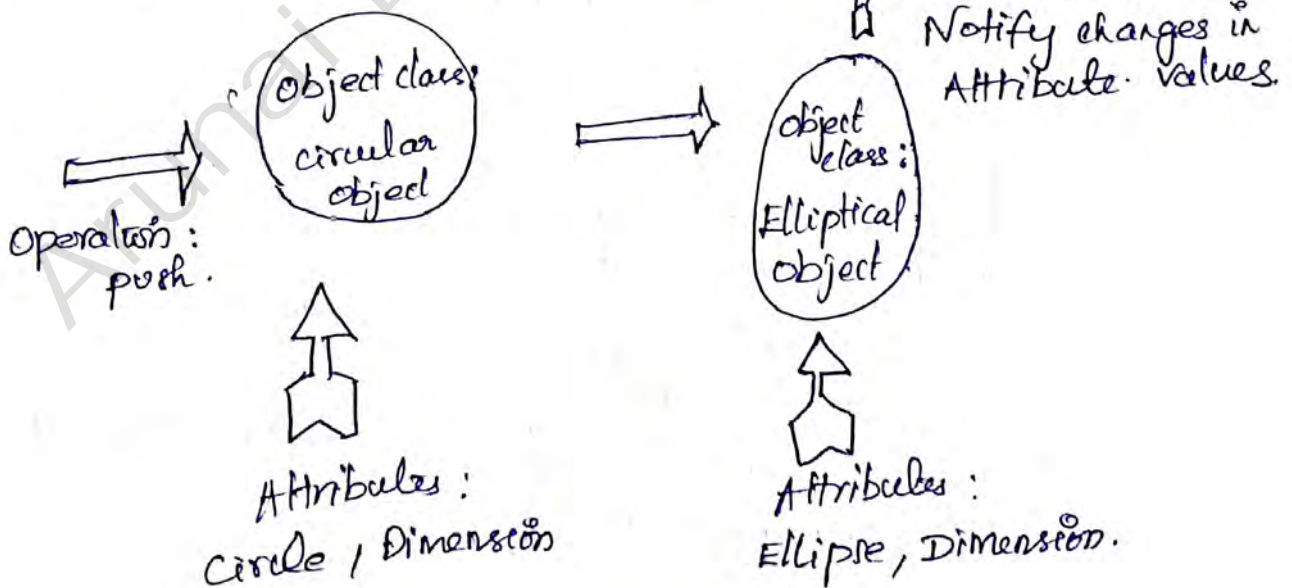 Notify changes in
Attribute. values.
Object class:
circular
object
object
class:
Elliptical
object
Operation:
push.
Attributes:
Circle, Dimension
Attributes:
Ellipse, Dimension.
Arunai